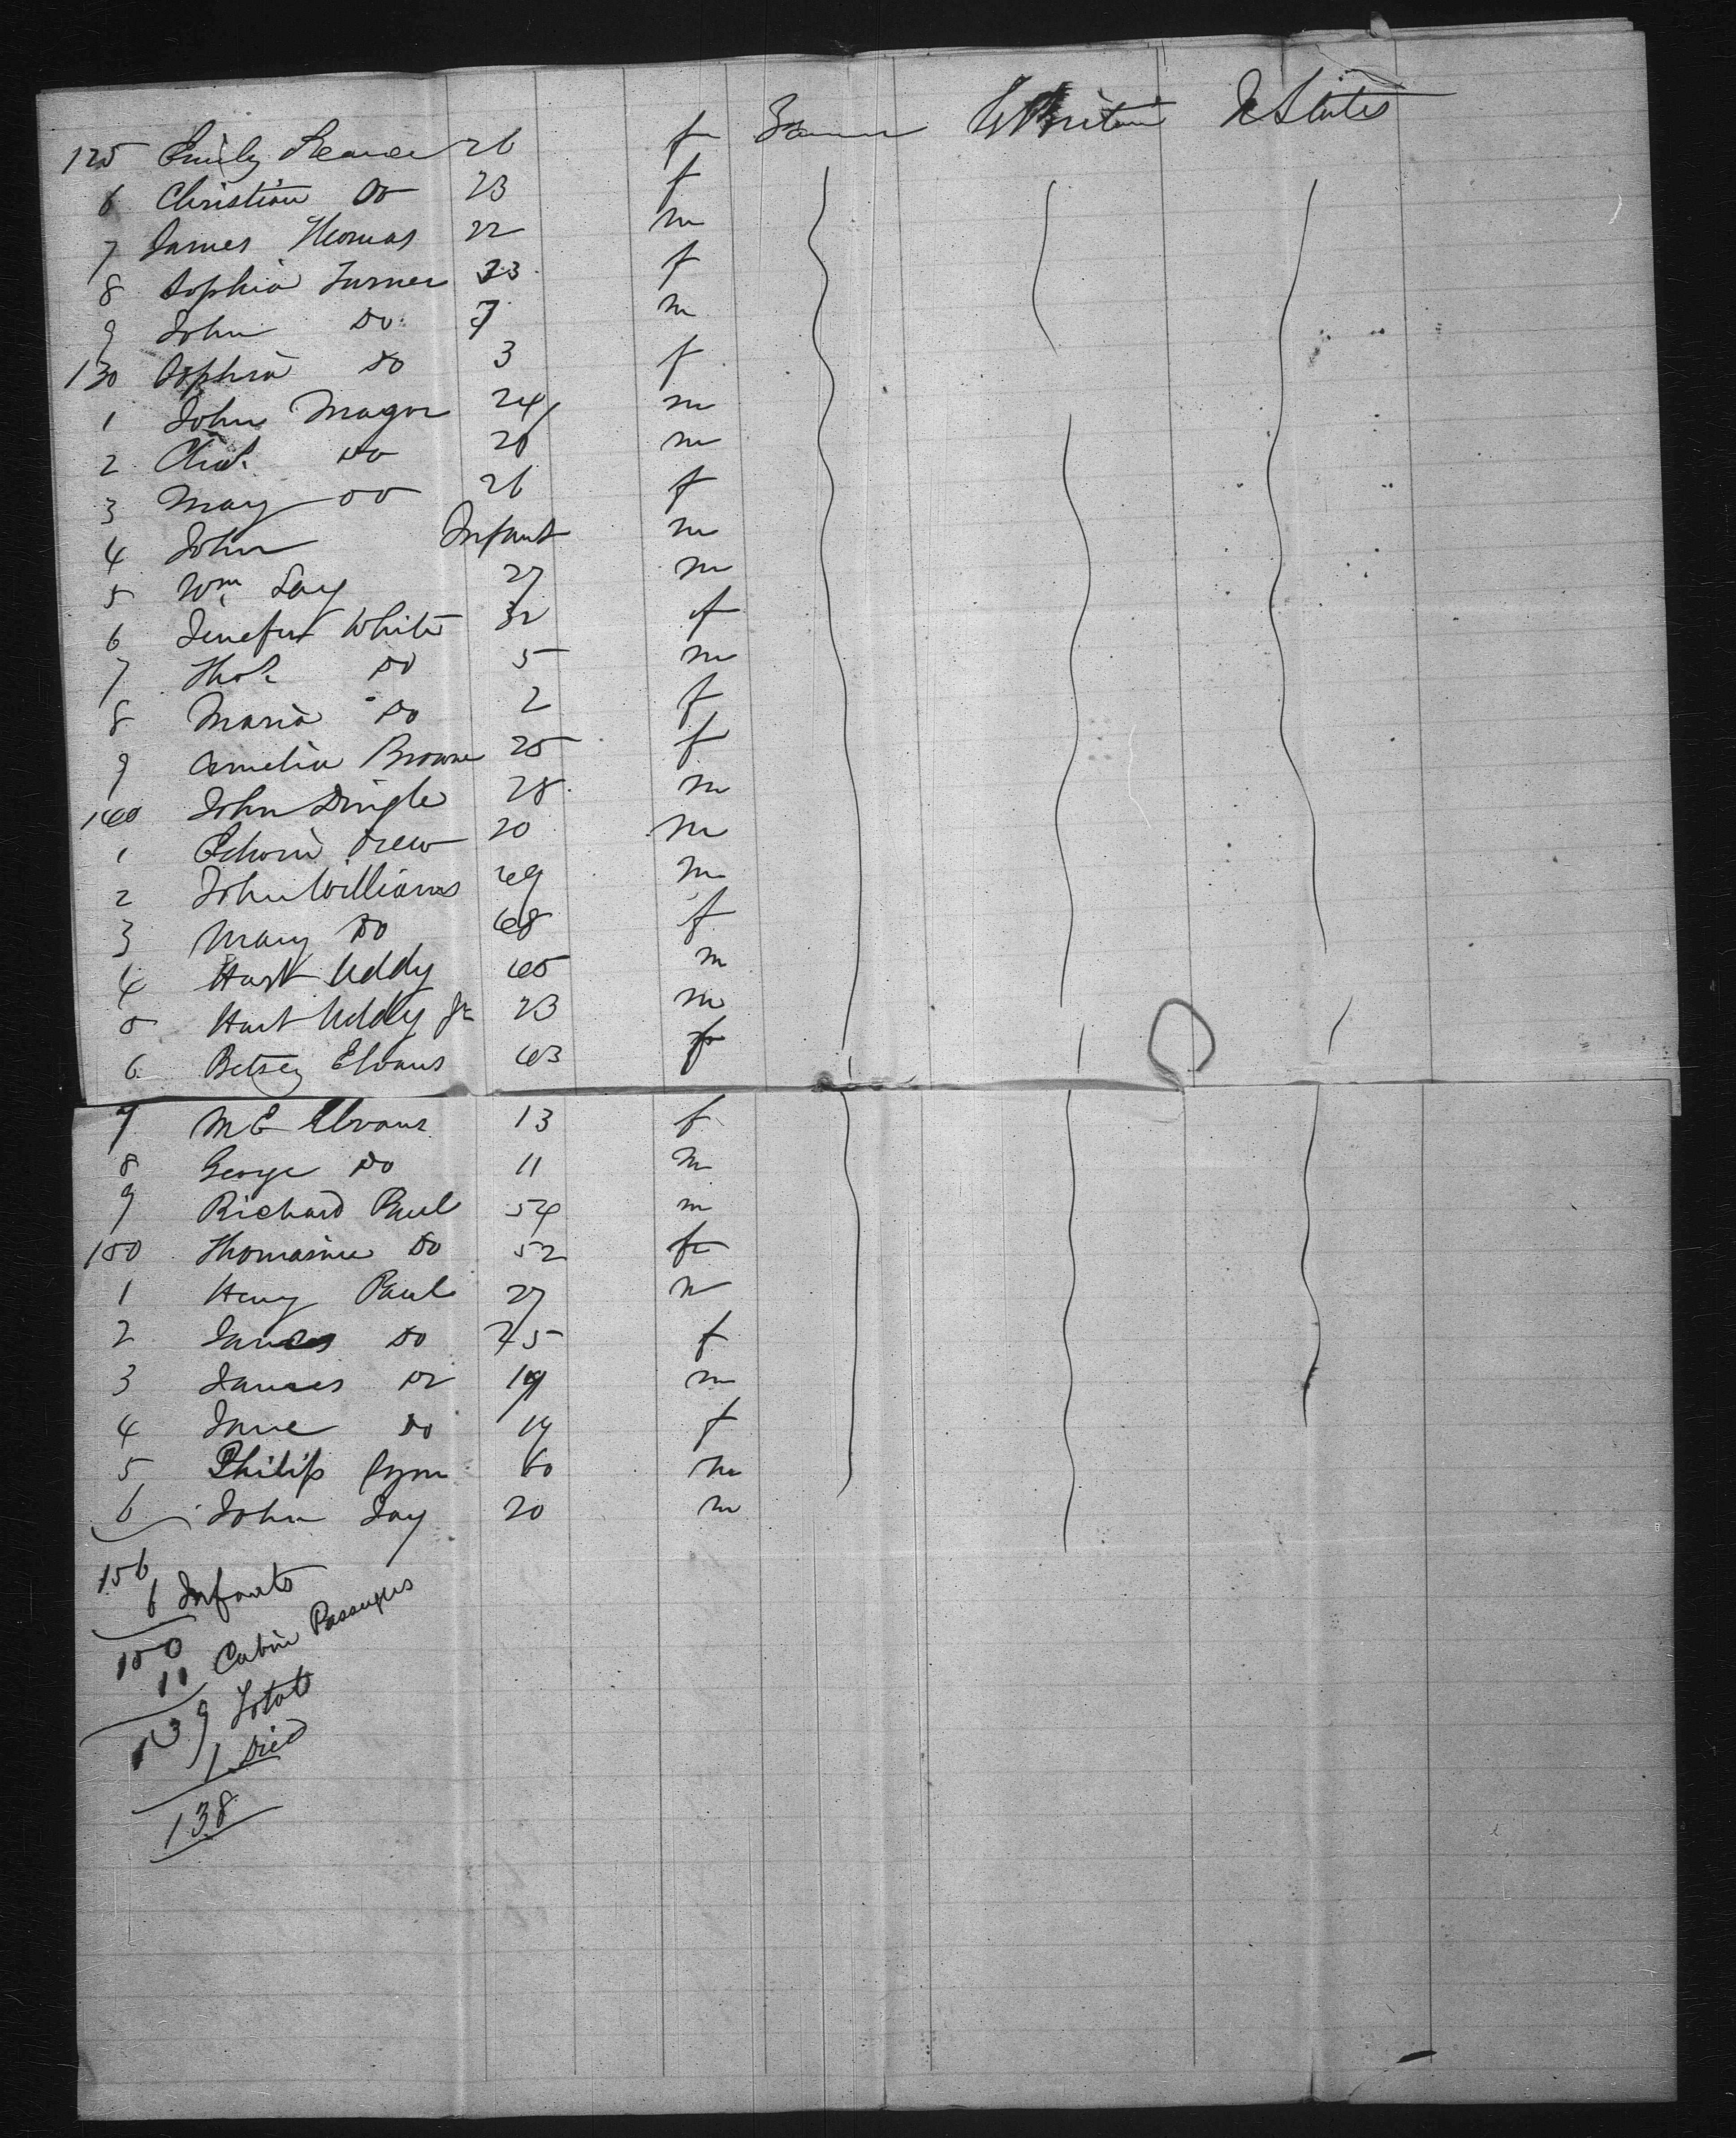 125 Emily Pearce 26 f Farmer Gt Britain U States
6 Christian Do 23 f
7 James Thomas 22 m
8 Sophia Turner 33 f
9 John Do 7 m
130 Sophia Do 3 f
1 John Magor 24 m
2 Chas. Do 28 m
3 Mary Do 26 f
4 John Infant m
5 Wm Lay 27 m
6 Jenefer White 32 f
7 Thos. Do 5 m
8 Maria Do 2 f
9 Amelia Browne 25 f
140 John Dingle 28 m
1 Edwin Drew 20 m
2 John Williams 49 m
3 Mary Do 48 f
4 Hart Uddy 45 m
5 Hart Uddy Jr 23 m
6 Betsey Elvans 43 f
7 M E Elvans 13 f
8 George Do 11 m
9 Richard Paul 54 m
150 Thomasine Do 52 f
1 Henry Paul 27 m
2 Do f
3 James Do 19 m
4 Jane Do 14 f
5 Philip 60 m
6 John Jay 20 m
156
6 Infants
150
11 Cabin Passengers
139 Total
1 Died
138